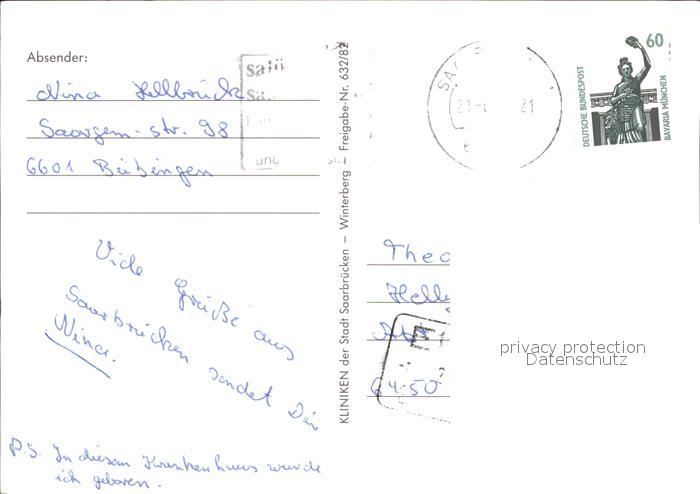 Absender:
Nina Hellbrück
Saargem. str. 98
6601 Bübingen
Viele Grüße aus
Saarbrücken sendet Dir
Nina.
P.S. In diesem Krankenhaus wurde
ich geboren.
KLINIKEN der Stadt Saarbrücken – Winterberg – Freigabe-Nr. 632/82
21
21
60
DEUTSCHE BUNDESPOST
BAVARIA MÜNCHEN
Theo
Hell
6450
privacy protection
Datenschutz